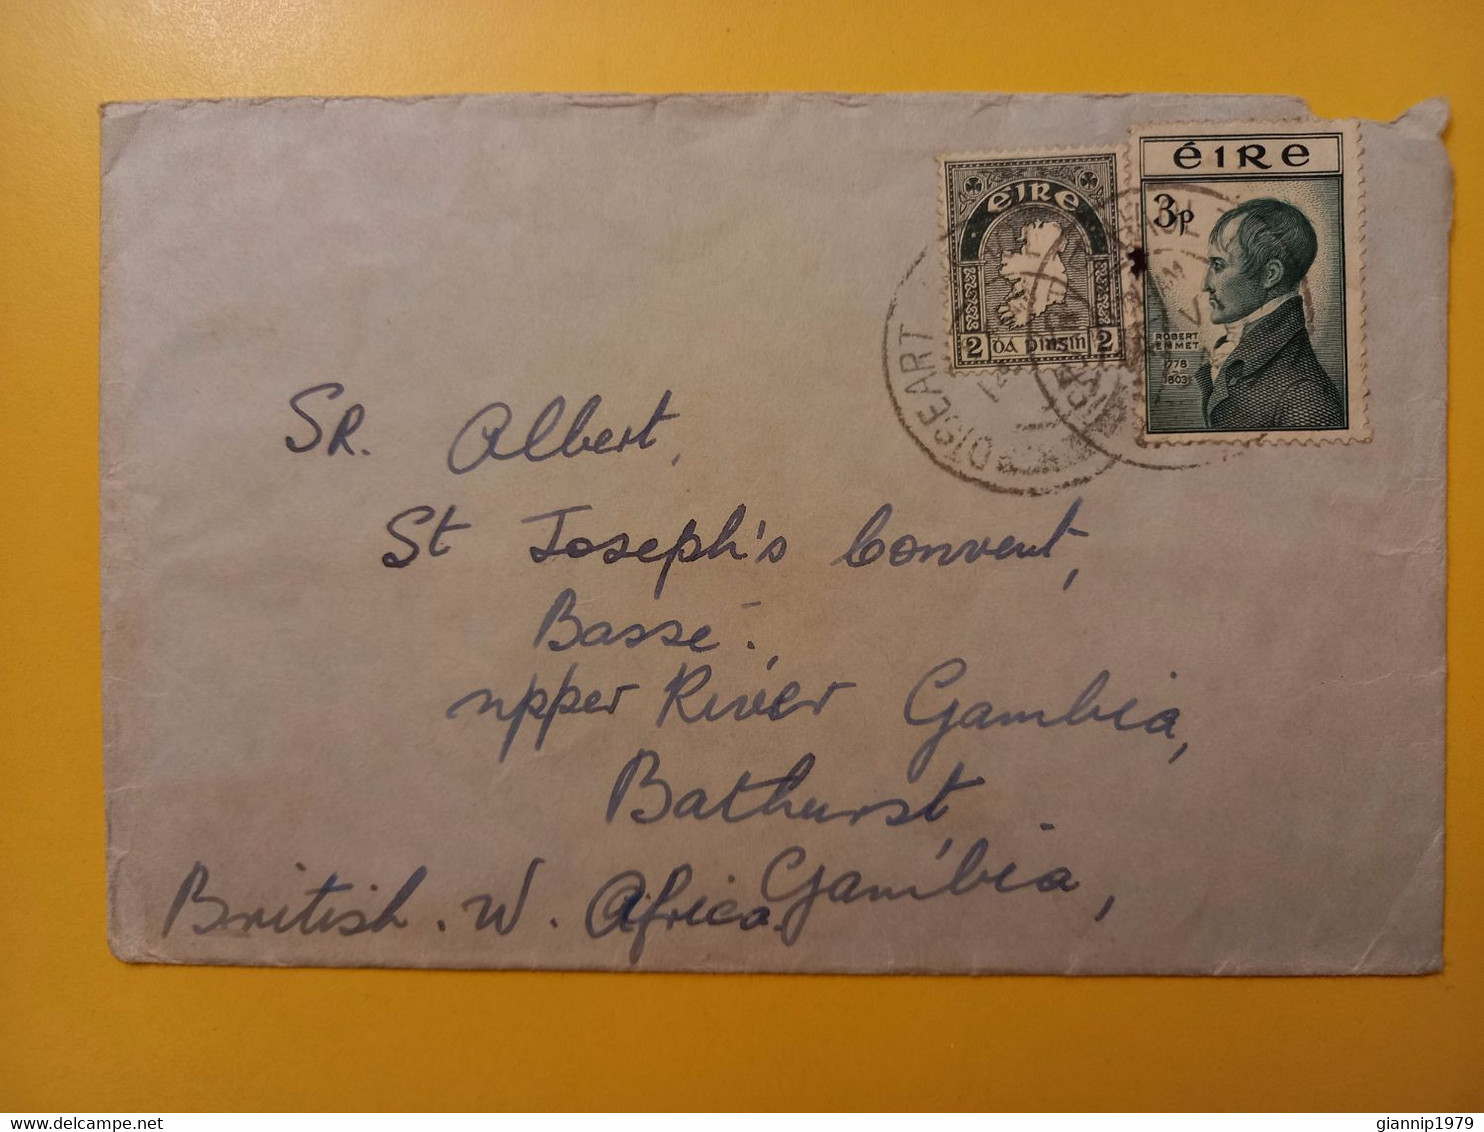 éire
3p
ROBERT
EMMET
1778
1803
éire
2 dá pingin 2
DISEART
SR. Albert,
St Joseph's Convent,
Bassé.,
upper River Gambia,
Bathurst,
Gambia,
British. W. Africa.
giannip1979